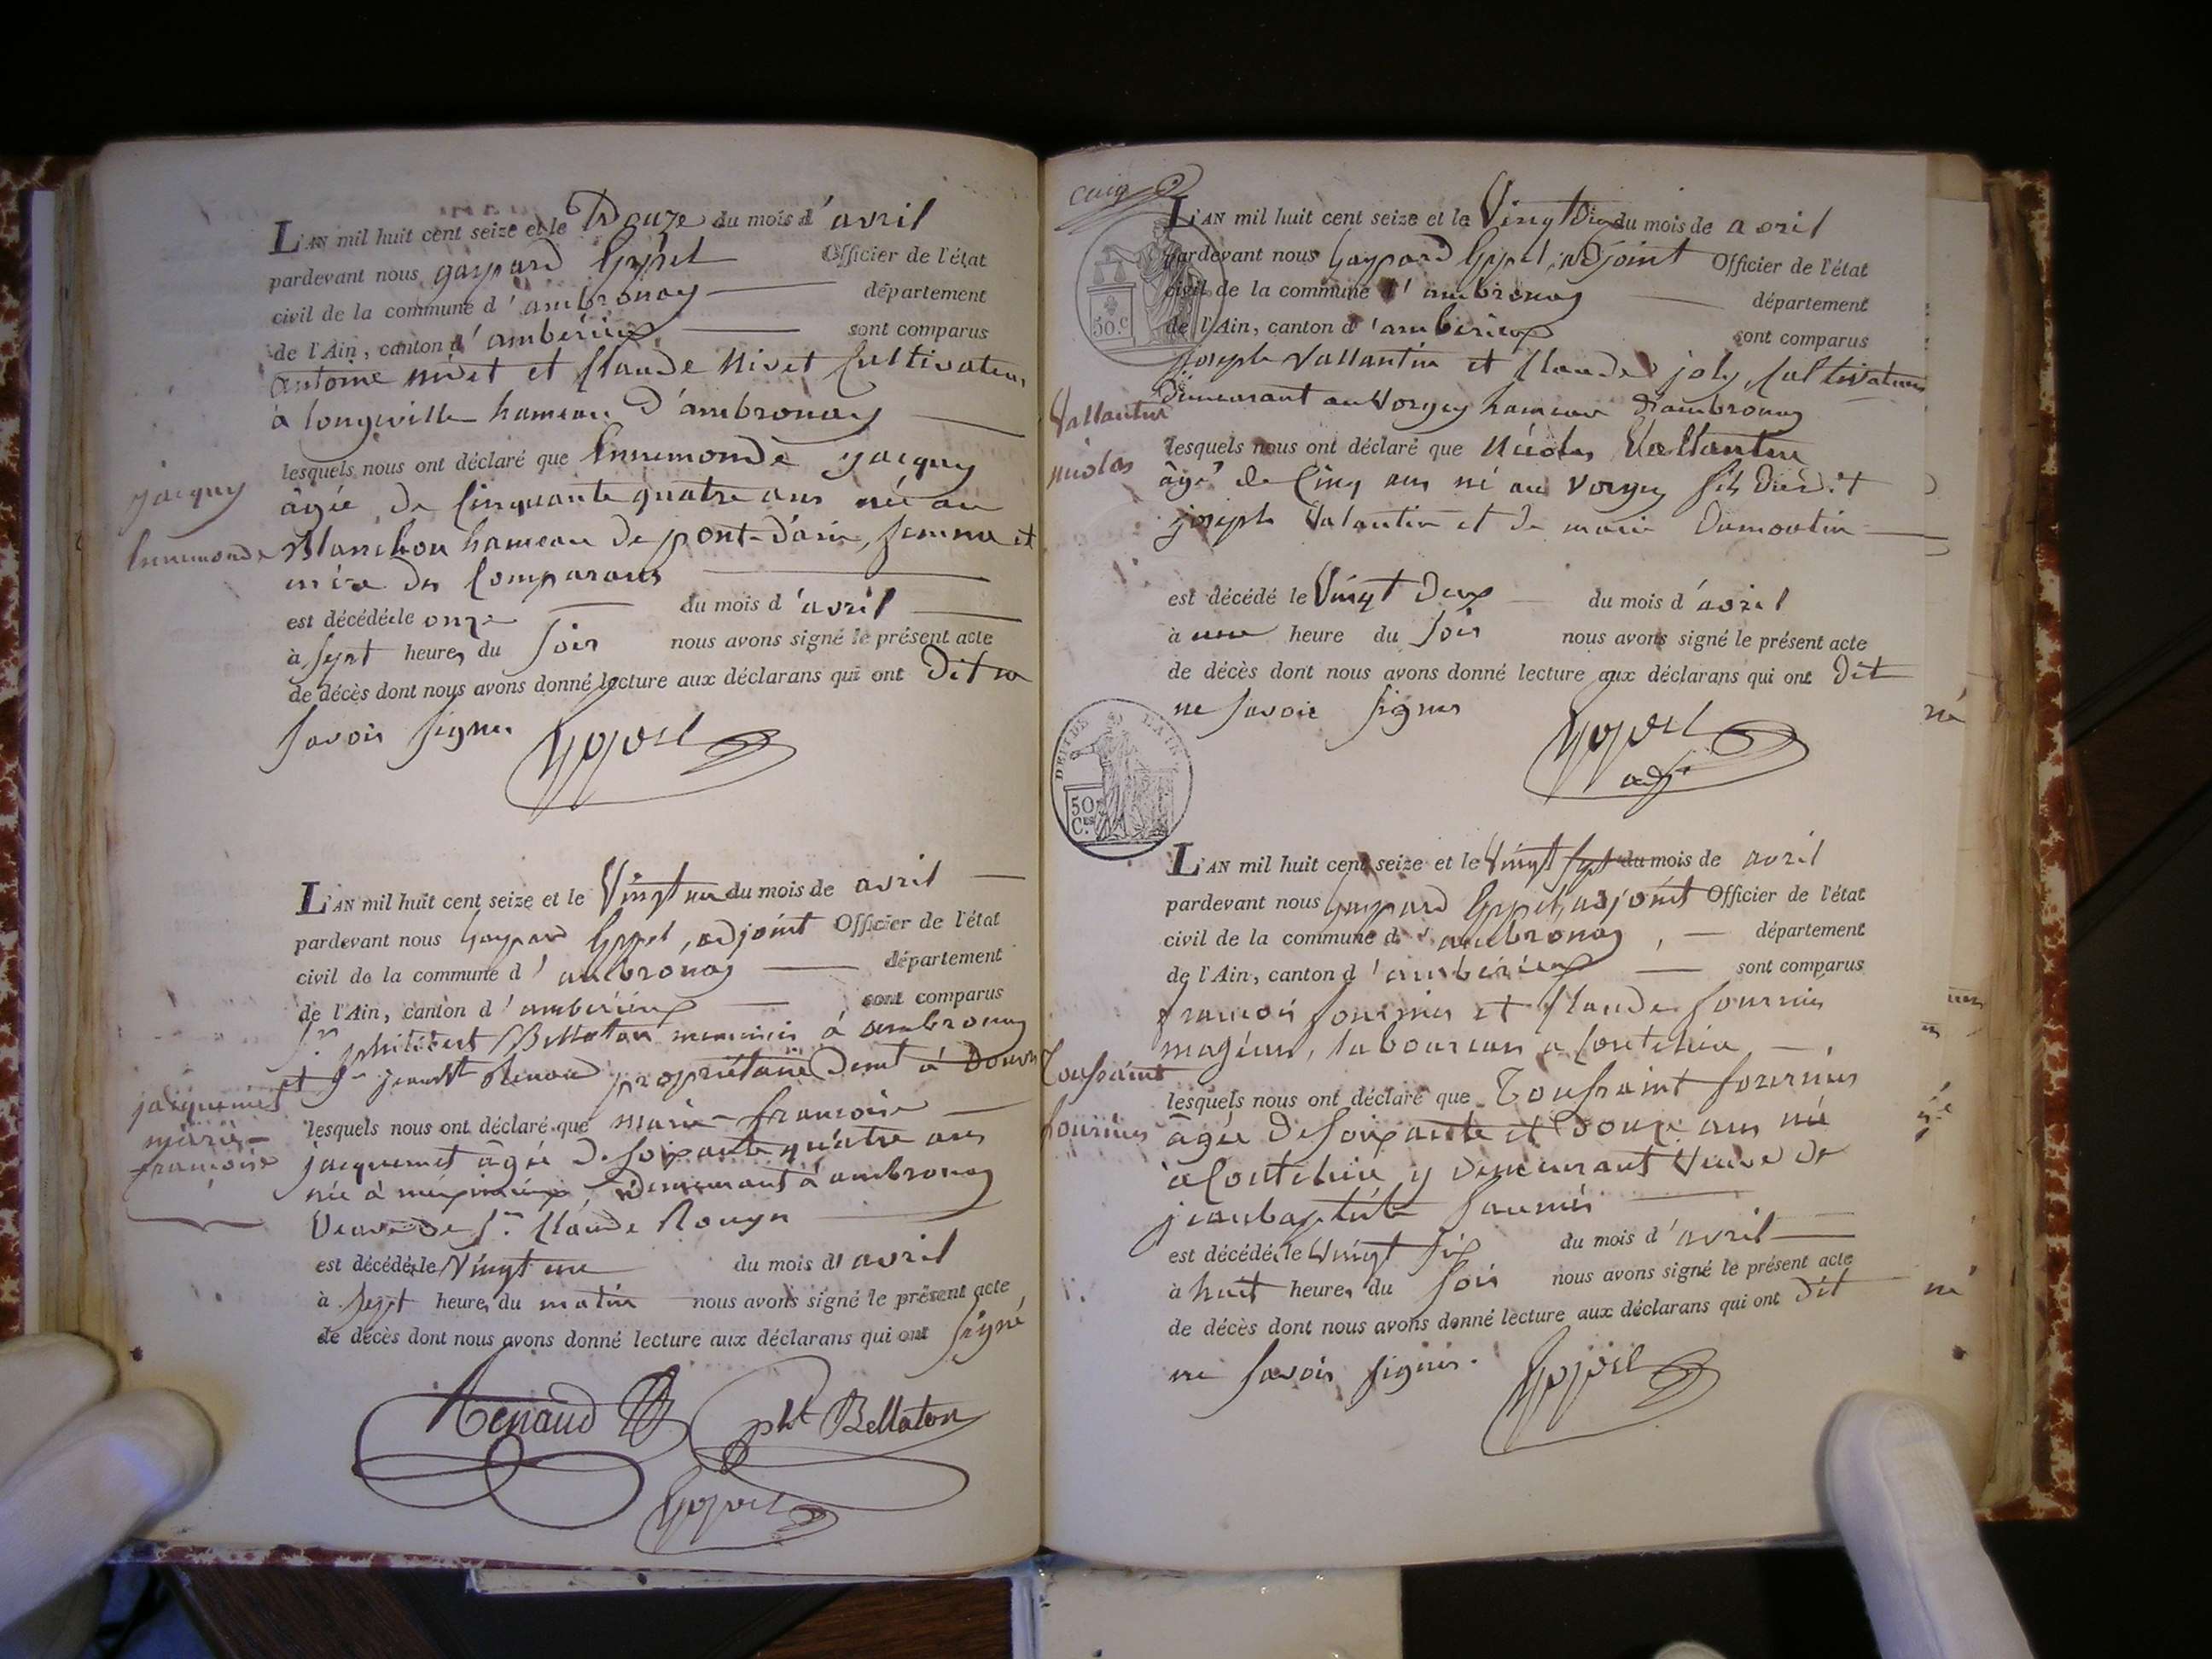 L'AN mil huit cent seize et le Douze du mois d'avril
pardevant nous gaspard Goppel Officier de l'état
civil de la commune d'ambronay département
de l'Ain, canton d'ambérieux sont comparus
antoine nivet et Claude Nivet Cultivateurs
à longeville hameau d'ambronay
jacquy
Ennemonde
lesquels nous ont déclaré que Ennemonde jacquy
âgée de Cinquante quatre ans née au
Blanchon hameau de pont-d'ain, femme et
mère des Comparans
est décédée le onze du mois d'avril
à sept heures du soir nous avons signé le présent acte
de décès dont nous avons donné lecture aux déclarans qui ont Dit ne
savoir signer
L'AN mil huit cent seize et le Vingt un du mois de avril
pardevant nous Gaspard, adjoint Officier de l'état
civil de la commune d'ambronay département
de l'Ain, canton d'ambérieux sont comparus
Sr. philibert Bellaton à ambronay
et Sr jean Bte Renaud propriétaire Demt à Douvres
jacquemet
marie-
francoise
lesquels nous ont déclaré que marie-francoise
jacquemet âgée de soixante quatre ans
née à meximieux, demeurant à ambronay
Veuve de Sr. Claude Rouyn
est décédée le Vingt un du mois d'avril
à sept heures du matin nous avons signé le présent acte
de décès dont nous avons donné lecture aux déclarans qui ont signé
Renaud pht Bellaton
L'AN mil huit cent seize et le Vingt Deux du mois de avril
pardevant nous Gaspard, adjoint Officier de l'état
civil de la commune d'ambronay département
50.c
de l'Ain, canton d'ambérieux sont comparus
joseph Vallantin et Claude joly, Cultivateurs
Demeurant au Vorgey hameau d'ambronay
Vallantin
nicolas
lesquels nous ont déclaré que Nicolas Vallantin
âgé de Cinq ans né au Vorgey fils Dudit
joseph Valantin et de marie Dumoulin
est décédé le Vingt Deux du mois d'avril
à une heure du soir nous avons signé le présent acte
de décès dont nous avons donné lecture aux déclarans qui ont Dit
ne savoir signer
adj.
50
Ces
L'AN mil huit cent seize et le Vingt sept du mois de avril
pardevant nous Gaspard, adjoint Officier de l'état
civil de la commune d'ambronay, département
de l'Ain, canton d'ambérieux sont comparus
francois fournier et Claude fournier
majeurs, laboureurs a Coutelieu
Toussaint
fournier
lesquels nous ont déclaré que Toussaint fournier
âgée de soixante et douze ans née
à Coutelieu y demeurant Veuve de
jean baptiste fournier
est décédée le Vingt six du mois d'avril
à huit heures du soir nous avons signé le présent acte
de décès dont nous avons donné lecture aux déclarans qui ont dit
ne savoir signer.